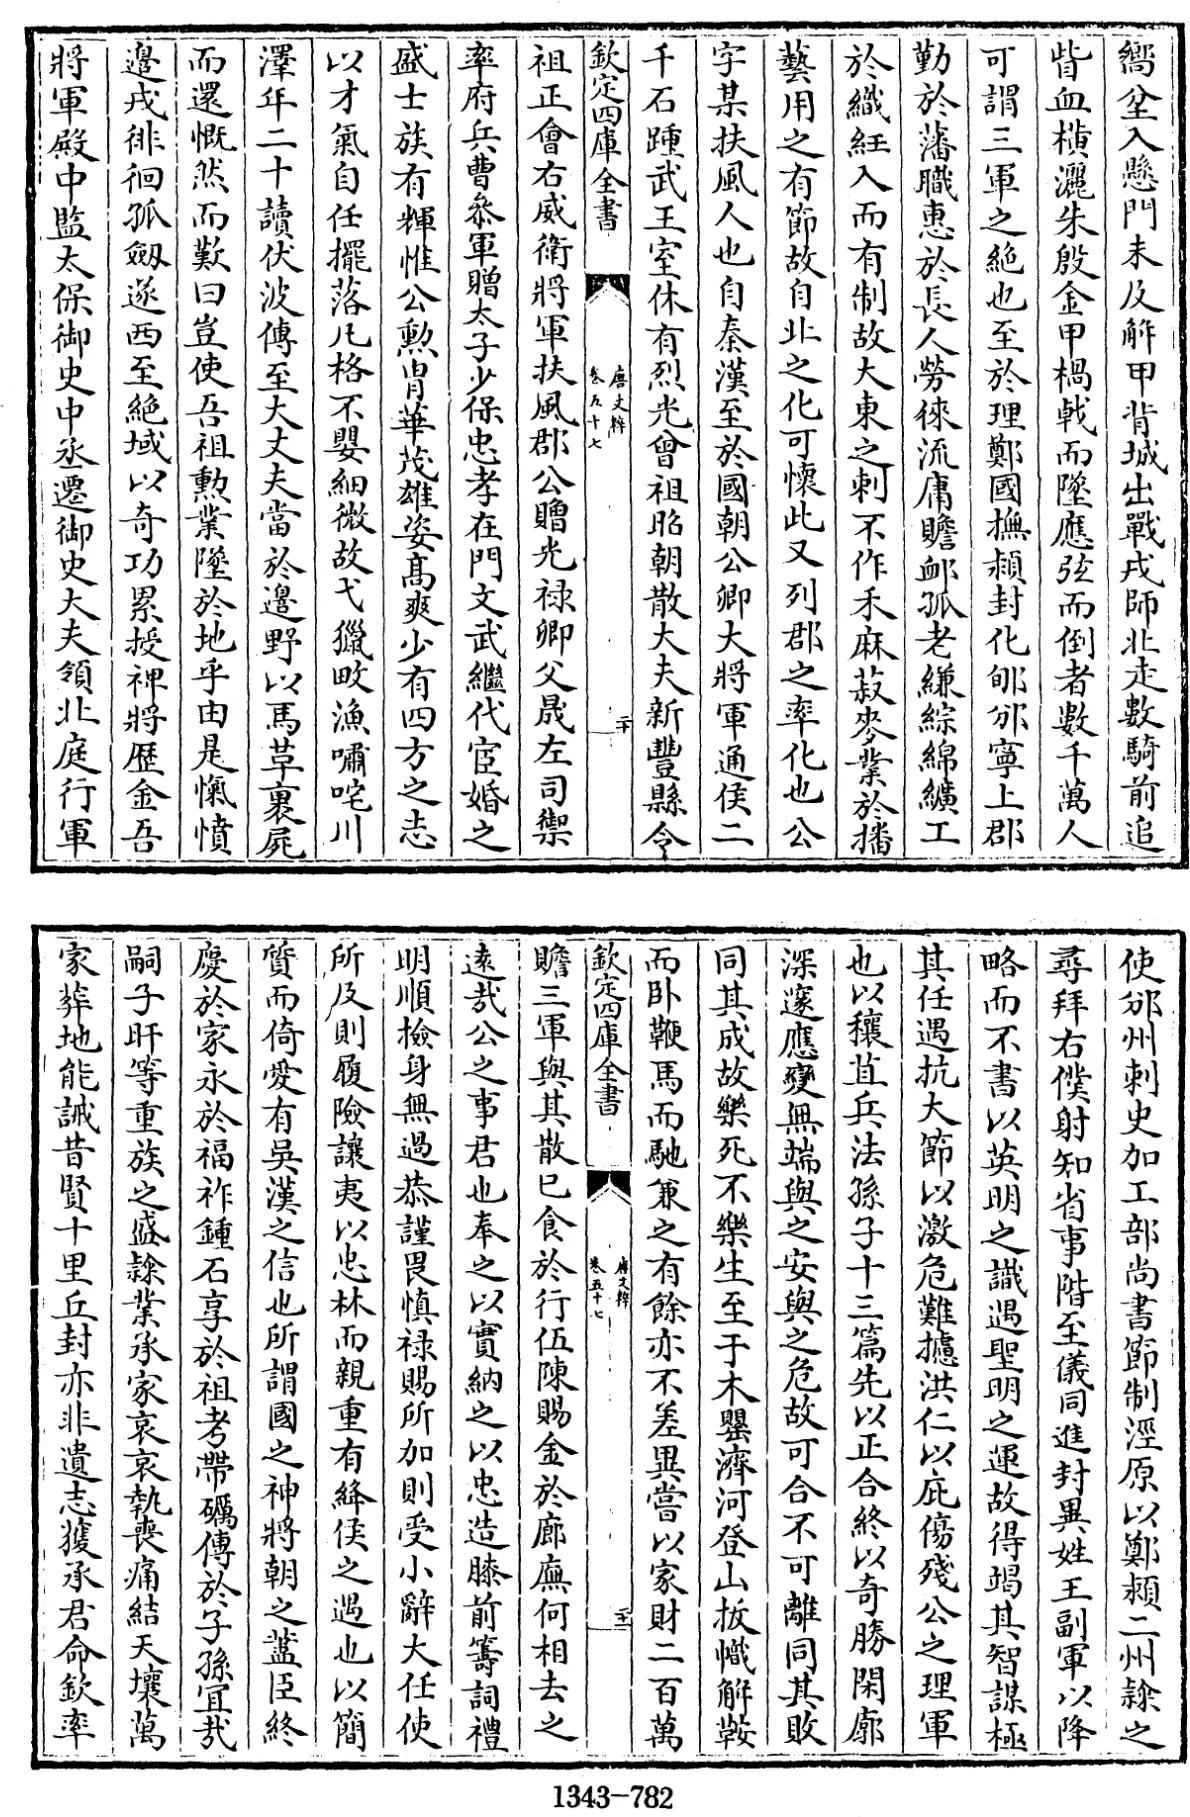 嚮坌入懸門未及解甲背城出戰戎師北走數騎前追
眥血横灑朱殷金甲楇戟而墜應弦而倒者數千萬人
可謂三軍之絶也至於理鄭國撫潁封化郇邠寧上郡
勤於藩職惠於長人勞徠流庸贍卹孤老縑綜綿纊工
於織紝入而有制故大東之刺不作禾麻菽麥業於播
藝用之有節故自北之化可懷此又列郡之率化也公
字某扶風人也自秦漢至於國朝公卿大將軍通侯二
千石踵武王室休有烈光曾祖昭朝散大夫新豐縣令
欽定四庫全書
唐文粹
卷五十七
二十
祖正會右威衛將軍扶風郡公贈光禄卿父晟左司禦
率府兵曹參軍贈太子少保忠孝在門文武繼代宦婚之
盛士族有輝惟公勲胄華茂雄姿髙爽少有四方之志
以才氣自任擺落凡格不嬰細微故弋獵畋漁嘯咤川
澤年二十讀伏波傳至大丈夫當於邊野以馬革裹屍
而還慨然而歎曰豈使吾祖勲業墜於地乎由是愾憤
邊戎徘徊孤劔遂西至絶域以奇功累授裨將歴金吾
將軍殿中監太保御史中丞遷御史大夫領北庭行軍
使邠州刺史加工部尚書節制涇原以鄭潁二州隸之
尋拜右僕射知省事階至儀同進封異姓王副軍以降
略而不書以英明之識遇聖明之運故得竭其智謀極
其任遇抗大節以激危難攄洪仁以庇傷殘公之理軍
也以穰苴兵法孫子十三篇先以正合終以奇勝閑廓
深邃應變無端與之安與之危故可合不可離同其敗
同其成故樂死不樂生至于木罌濟河登山扳幟解鞍
而卧鞭馬而馳兼之有餘亦不差異嘗以家財二百萬
欽定四庫全書
唐文粹
卷五十七
二十一
贍三軍與其散已食於行伍陳賜金於廊廡何相去之
遠哉公之事君也奉之以實納之以忠造膝前籌詞禮
明順撿身無過恭謹畏慎禄賜所加則受小辭大任使
所及則履險讓夷以忠林而親重有絳侯之遇也以簡
質而倚愛有吳漢之信也所謂國之神將朝之藎臣終
慶於家永於福祚鍾石享於祖考帶礪傳於子孫宜哉
嗣子旰等重族之盛隸業承家哀哀執喪痛結天壤萬
家葬地能誠昔賢十里丘封亦非遺志獲承君命欽率
1343-782